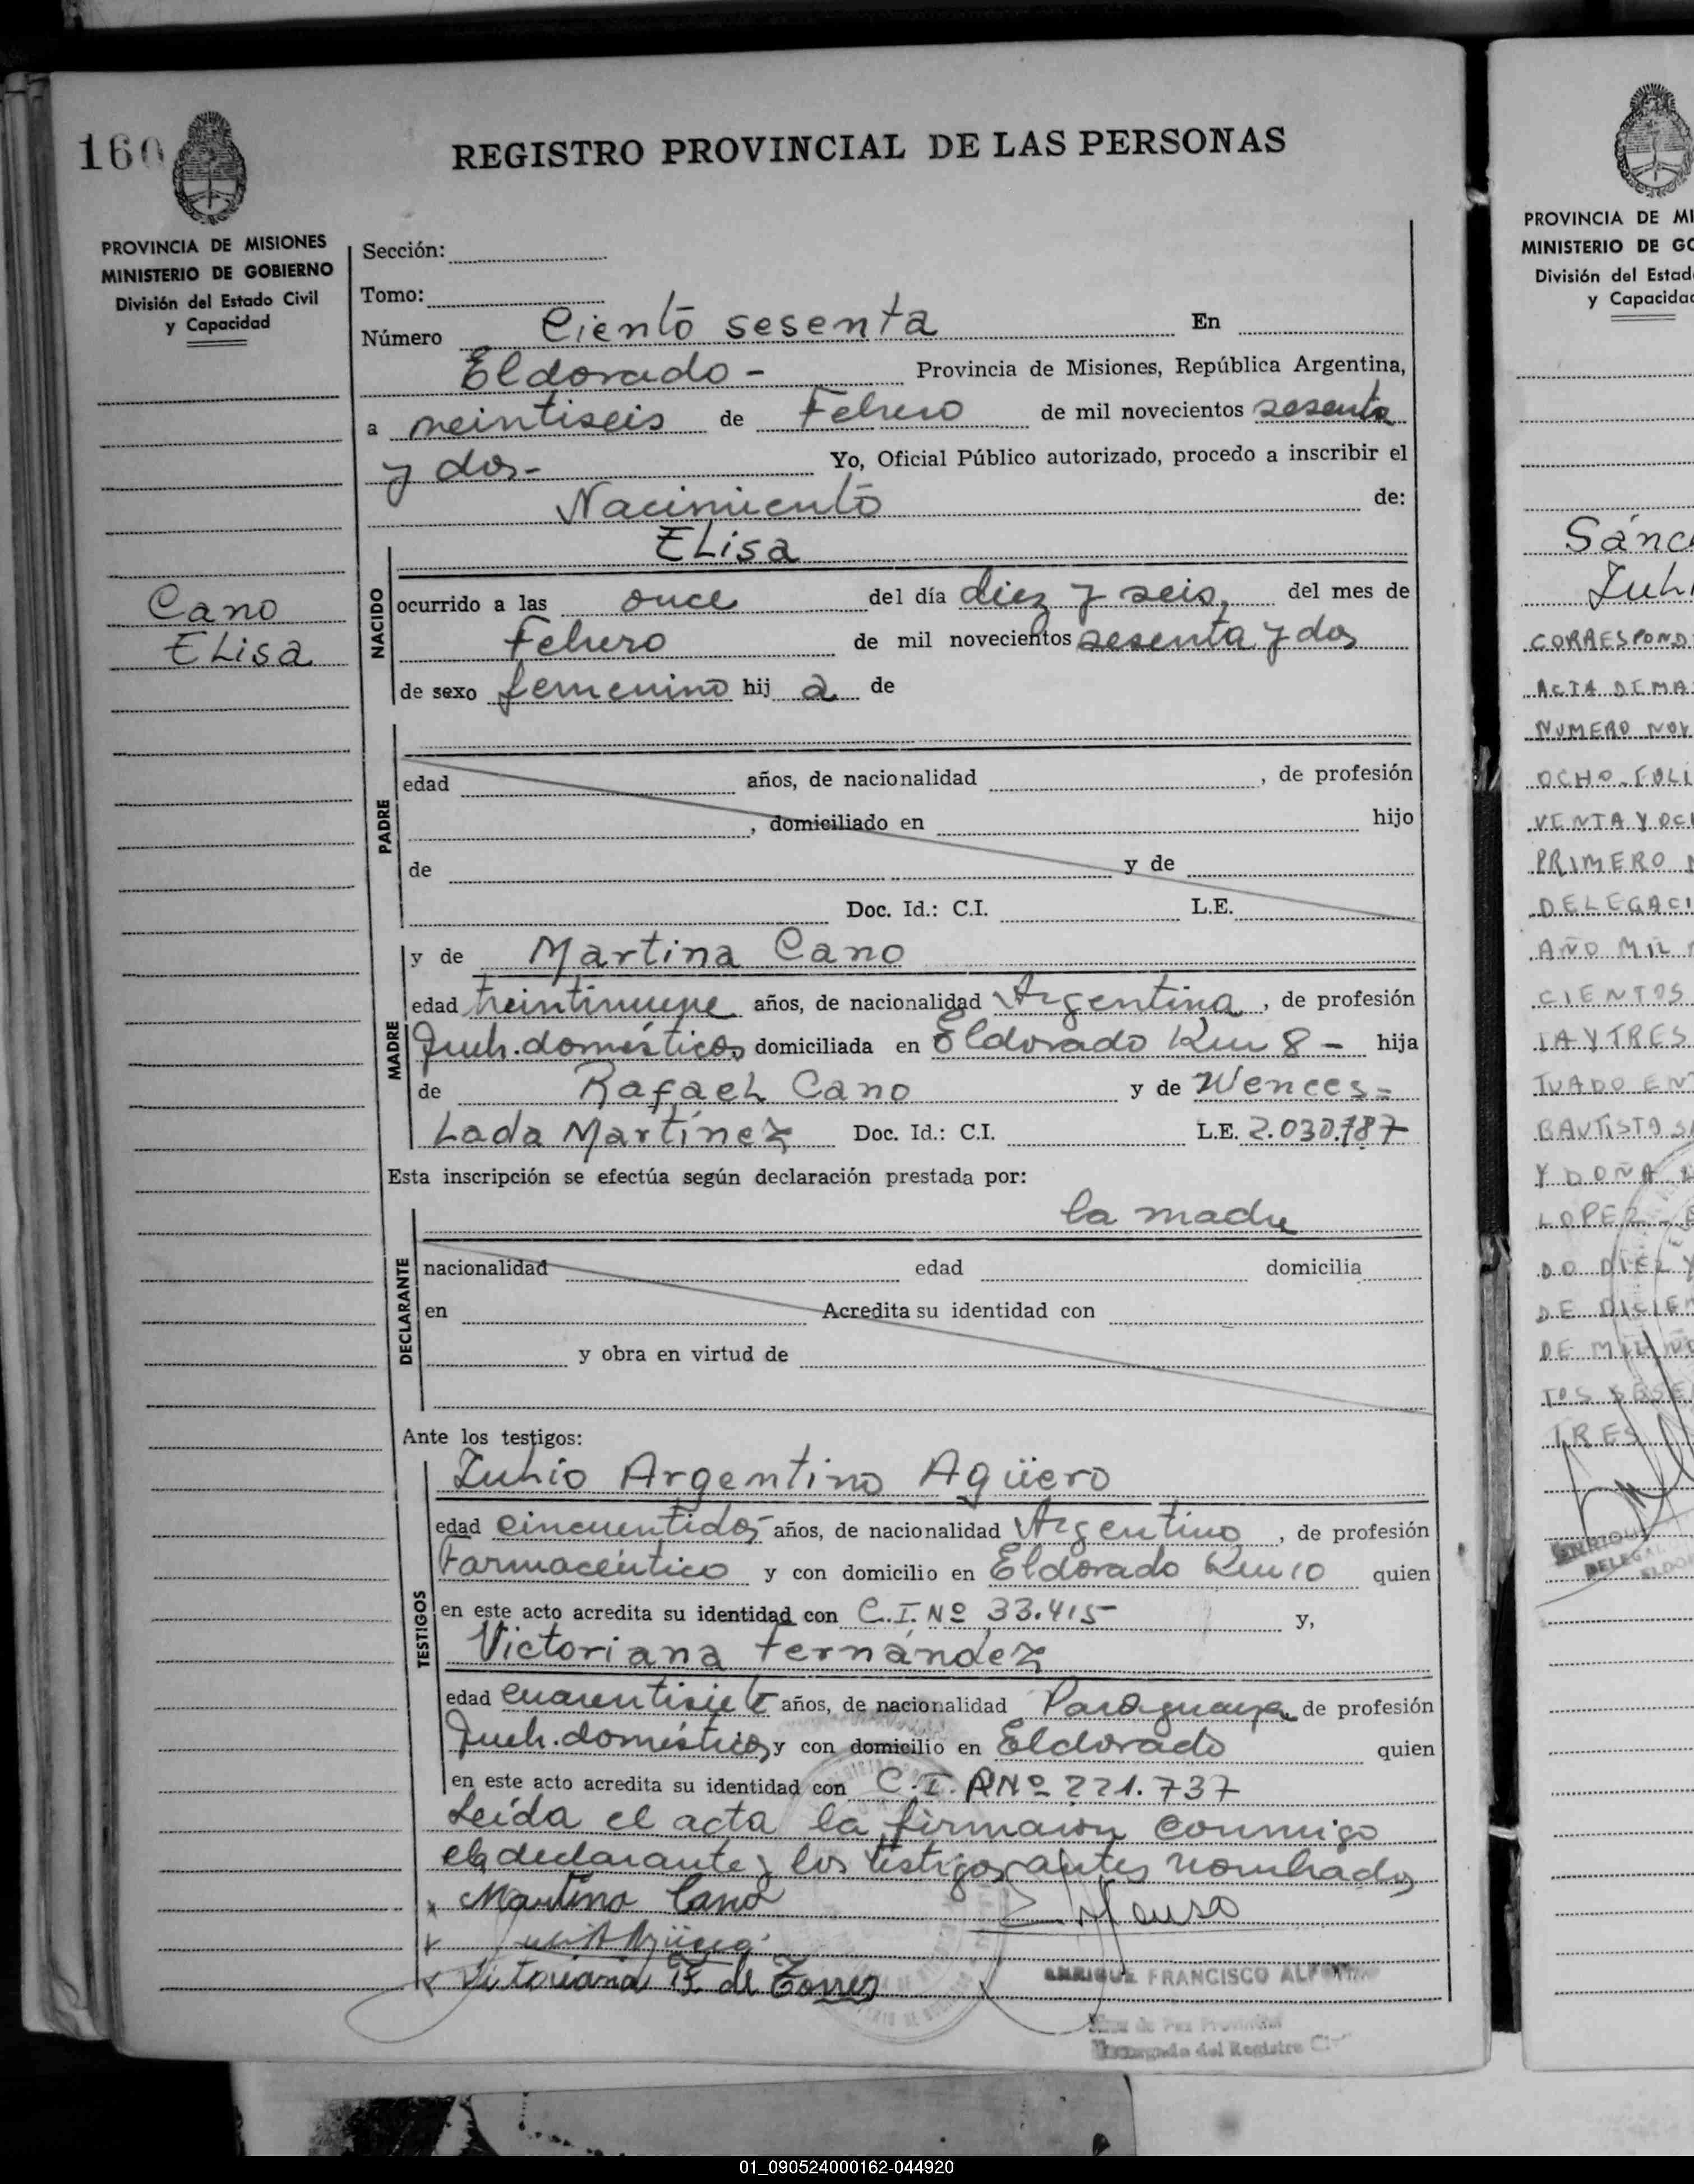 160
REGISTRO PROVINCIAL DE LAS PERSONAS
PROVINCIA DE MISIONES
MINISTERIO DE GOBIERNO
División del Estado Civil
y Capacidad
Cano
Elisa
Sección:
Tomo:
Número Ciento sesenta En
Eldorado - Provincia de Misiones, República Argentina,
a veintiseis de Febrero de mil novecientos sesenta
y dos- Yo, Oficial Público autorizado, procedo a inscribir el
Nacimiento de:
Elisa
NACIDO
ocurrido a las once del día diez y seis, del mes de
Febrero de mil novecientos sesenta y dos
de sexo femenino hij a de
PADRE
edad años, de nacionalidad , de profesión
, domiciliado en hijo
de y de
Doc. Id.: C.I. L.E.
MADRE
y de Martina Cano
edad treintinueve años, de nacionalidad Argentina, de profesión
Queh. domésticos domiciliada en Eldorado Km 8 - hija
de Rafael Cano y de Wences=
lada Martínez Doc. Id.: C.I. L.E. 2.030.787
Esta inscripción se efectúa según declaración prestada por:
la madre
DECLARANTE
nacionalidad edad domicilia
en Acredita su identidad con
y obra en virtud de
Ante los testigos:
TESTIGOS
Julio Argentino Agüero
edad cincuentidos años, de nacionalidad Argentino, de profesión
Farmacéutico y con domicilio en Eldorado Km 10 quien
en este acto acredita su identidad con C.I. Nº 33.415 y,
Victoriana Fernández
edad cuarentisiete años, de nacionalidad Paraguaya de profesión
Queh. domésticos y con domicilio en Eldorado quien
en este acto acredita su identidad con C.I. PNº 221.737
Leída el acta la firmaron conmigo
la declarante y los testigos antes nombrados
x Martina Cano
x
x Victoriana F. de Torres
ENRIQUE FRANCISCO ALFONSO
Juez de Paz Provincial
Encargado del Registro Civil
PROVINCIA DE MI
MINISTERIO DE GO
División del Estad
y Capacidad
Sánc
Juli
CORRESPOND
ACTA DE MA
NUMERO NOV
OCHO FOLI
VENTA Y OCH
PRIMERO
DELEGACI
AÑO MIL
CIENTOS
TA Y TRES
TUADO EN
BAUTISTA S
Y DOÑA
LOPEZ
DO DIEZ Y
DE DICIEM
DE MIL NO
TOS SESE
TRES
01_090524000162-044920